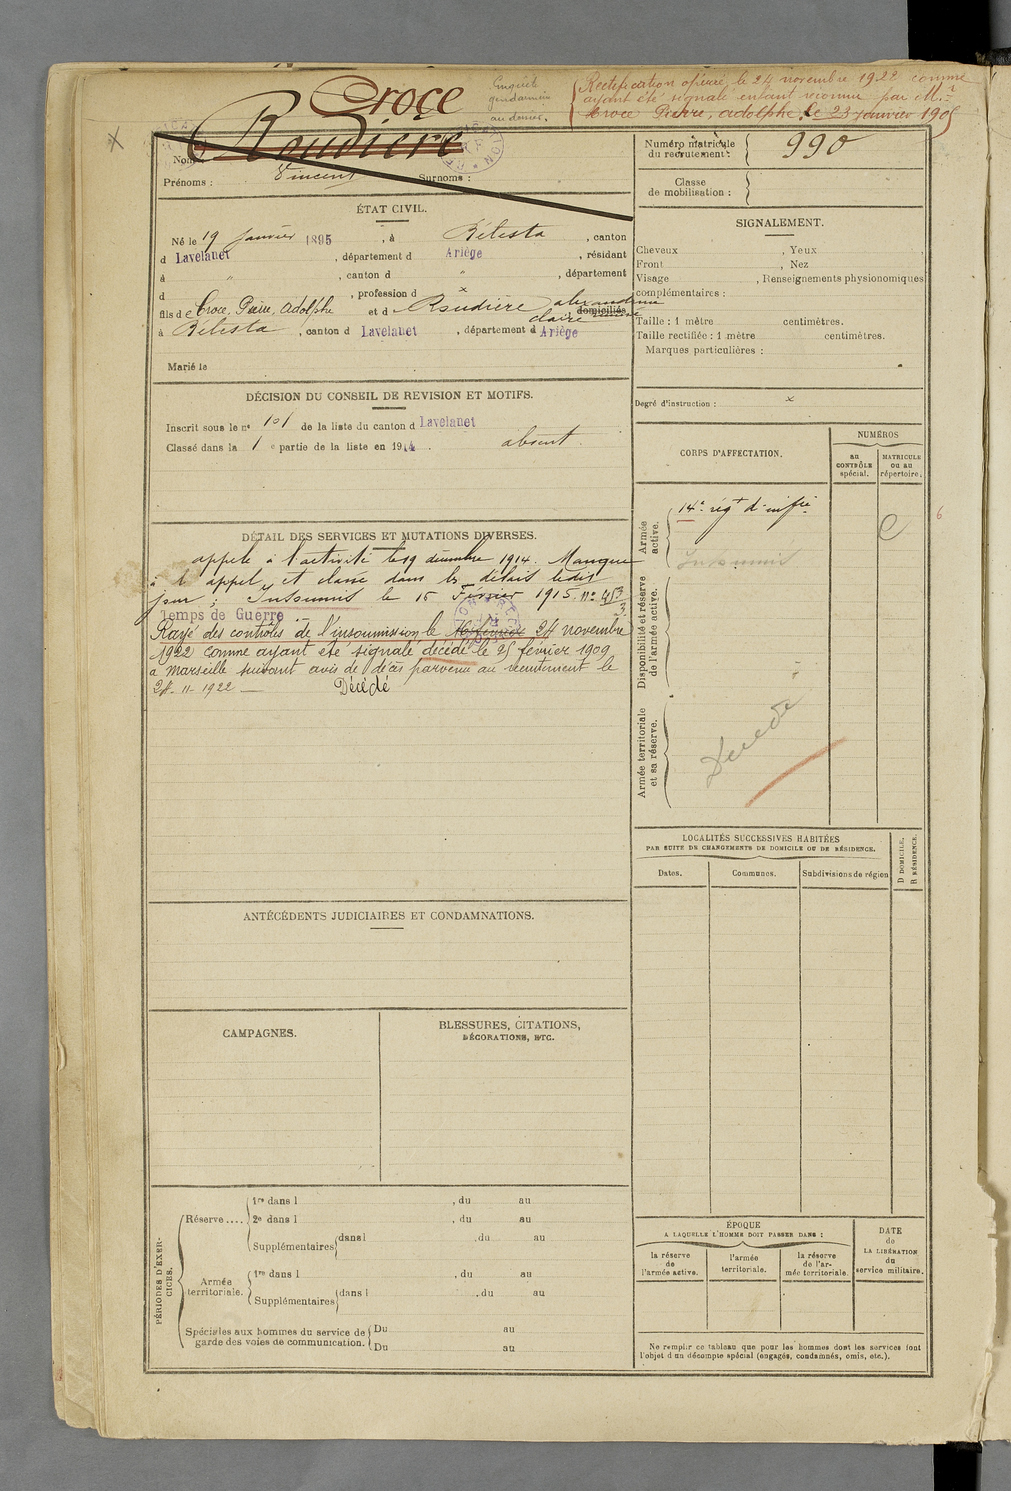 Croce
Enquête
gendarmerie
au dossier.
Rectification opérée le 24 novembre 1922 comme
ayant été signalé enfant reconnu par Mr
Croce Pierre, adolphe, le 23 janvier 1905
Roudière
Nom :
Prénoms : Vincent Surnoms :
Numéro matricule
du recrutement : 990
Classe
de mobilisation :
ÉTAT CIVIL.
Né le 19 janvier 1895, à Bélesta, canton
d Lavelanet, département d Ariège, résidant
à " , canton d " , département
d , profession d x
fils de Croce, Pierre, Adolphe et d Roudière alexandrine claire domiciliés
à Bélesta, canton d Lavelanet, département d Ariège
Marié le
SIGNALEMENT.
Cheveux , Yeux ,
Front , Nez
Visage , Renseignements physionomiques
complémentaires :
Taille : 1 mètre centimètres.
Taille rectifiée : 1 mètre centimètres.
Marques particulières :
Degré d'instruction : x
DÉCISION DU CONSEIL DE REVISION ET MOTIFS.
Inscrit sous le n° 101 de la liste du canton d Lavelanet
Classé dans la 1 e partie de la liste en 1914. absent.
CORPS D'AFFECTATION.
NUMÉROS
au
CONTRÔLE
spécial.
MATRICULE
ou au
répertoire.
Armée
active.
14e régt d'infie
6
Insoumis
Disponibilité et réserve
de l'armée active.
Armée territoriale
et sa réserve.
Décédé
DÉTAIL DES SERVICES ET MUTATIONS DIVERSES.
appelé à l'activité le 19 décembre 1914. Manque
à l'appel et classé dans les délais ledit
jour ; Insoumis le 15 Février 1915. n° 453
3
Temps de Guerre
Rayé des contrôles de l'insoumission le 24 novembre
1922 comme ayant été signalé décédé le 25 février 1909
à Marseille suivant avis de décès parvenu au recrutement le
24-11-1922 — Décédé
LOCALITÉS SUCCESSIVES HABITÉES
PAR SUITE DE CHANGEMENTS DE DOMICILE OU DE RÉSIDENCE.
Dates.
Communes.
Subdivisions de région
D DOMICILE.
R RÉSIDENCE.
ANTÉCÉDENTS JUDICIAIRES ET CONDAMNATIONS.
CAMPAGNES.
BLESSURES, CITATIONS,
DÉCORATIONS, ETC.
PÉRIODES D'EXER-
CICES.
Réserve ....
1re dans l , du au
2e dans l , du au
Supplémentaires dans l , du au
Armée
territoriale.
1re dans l , du au
Supplémentaires dans l , du au
Spéciales aux hommes du service de
garde des voies de communication.
Du au
Du au
ÉPOQUE
A LAQUELLE L'HOMME DOIT PASSER DANS :
la réserve
de
l'armée active.
l'armée
territoriale.
la réserve
de l'ar-
mée territoriale.
DATE
de
LA LIBÉRATION
du
service militaire.
Ne remplir ce tableau que pour les hommes dont les services font
l'objet d'un décompte spécial (engagés, condamnés, omis, etc.).